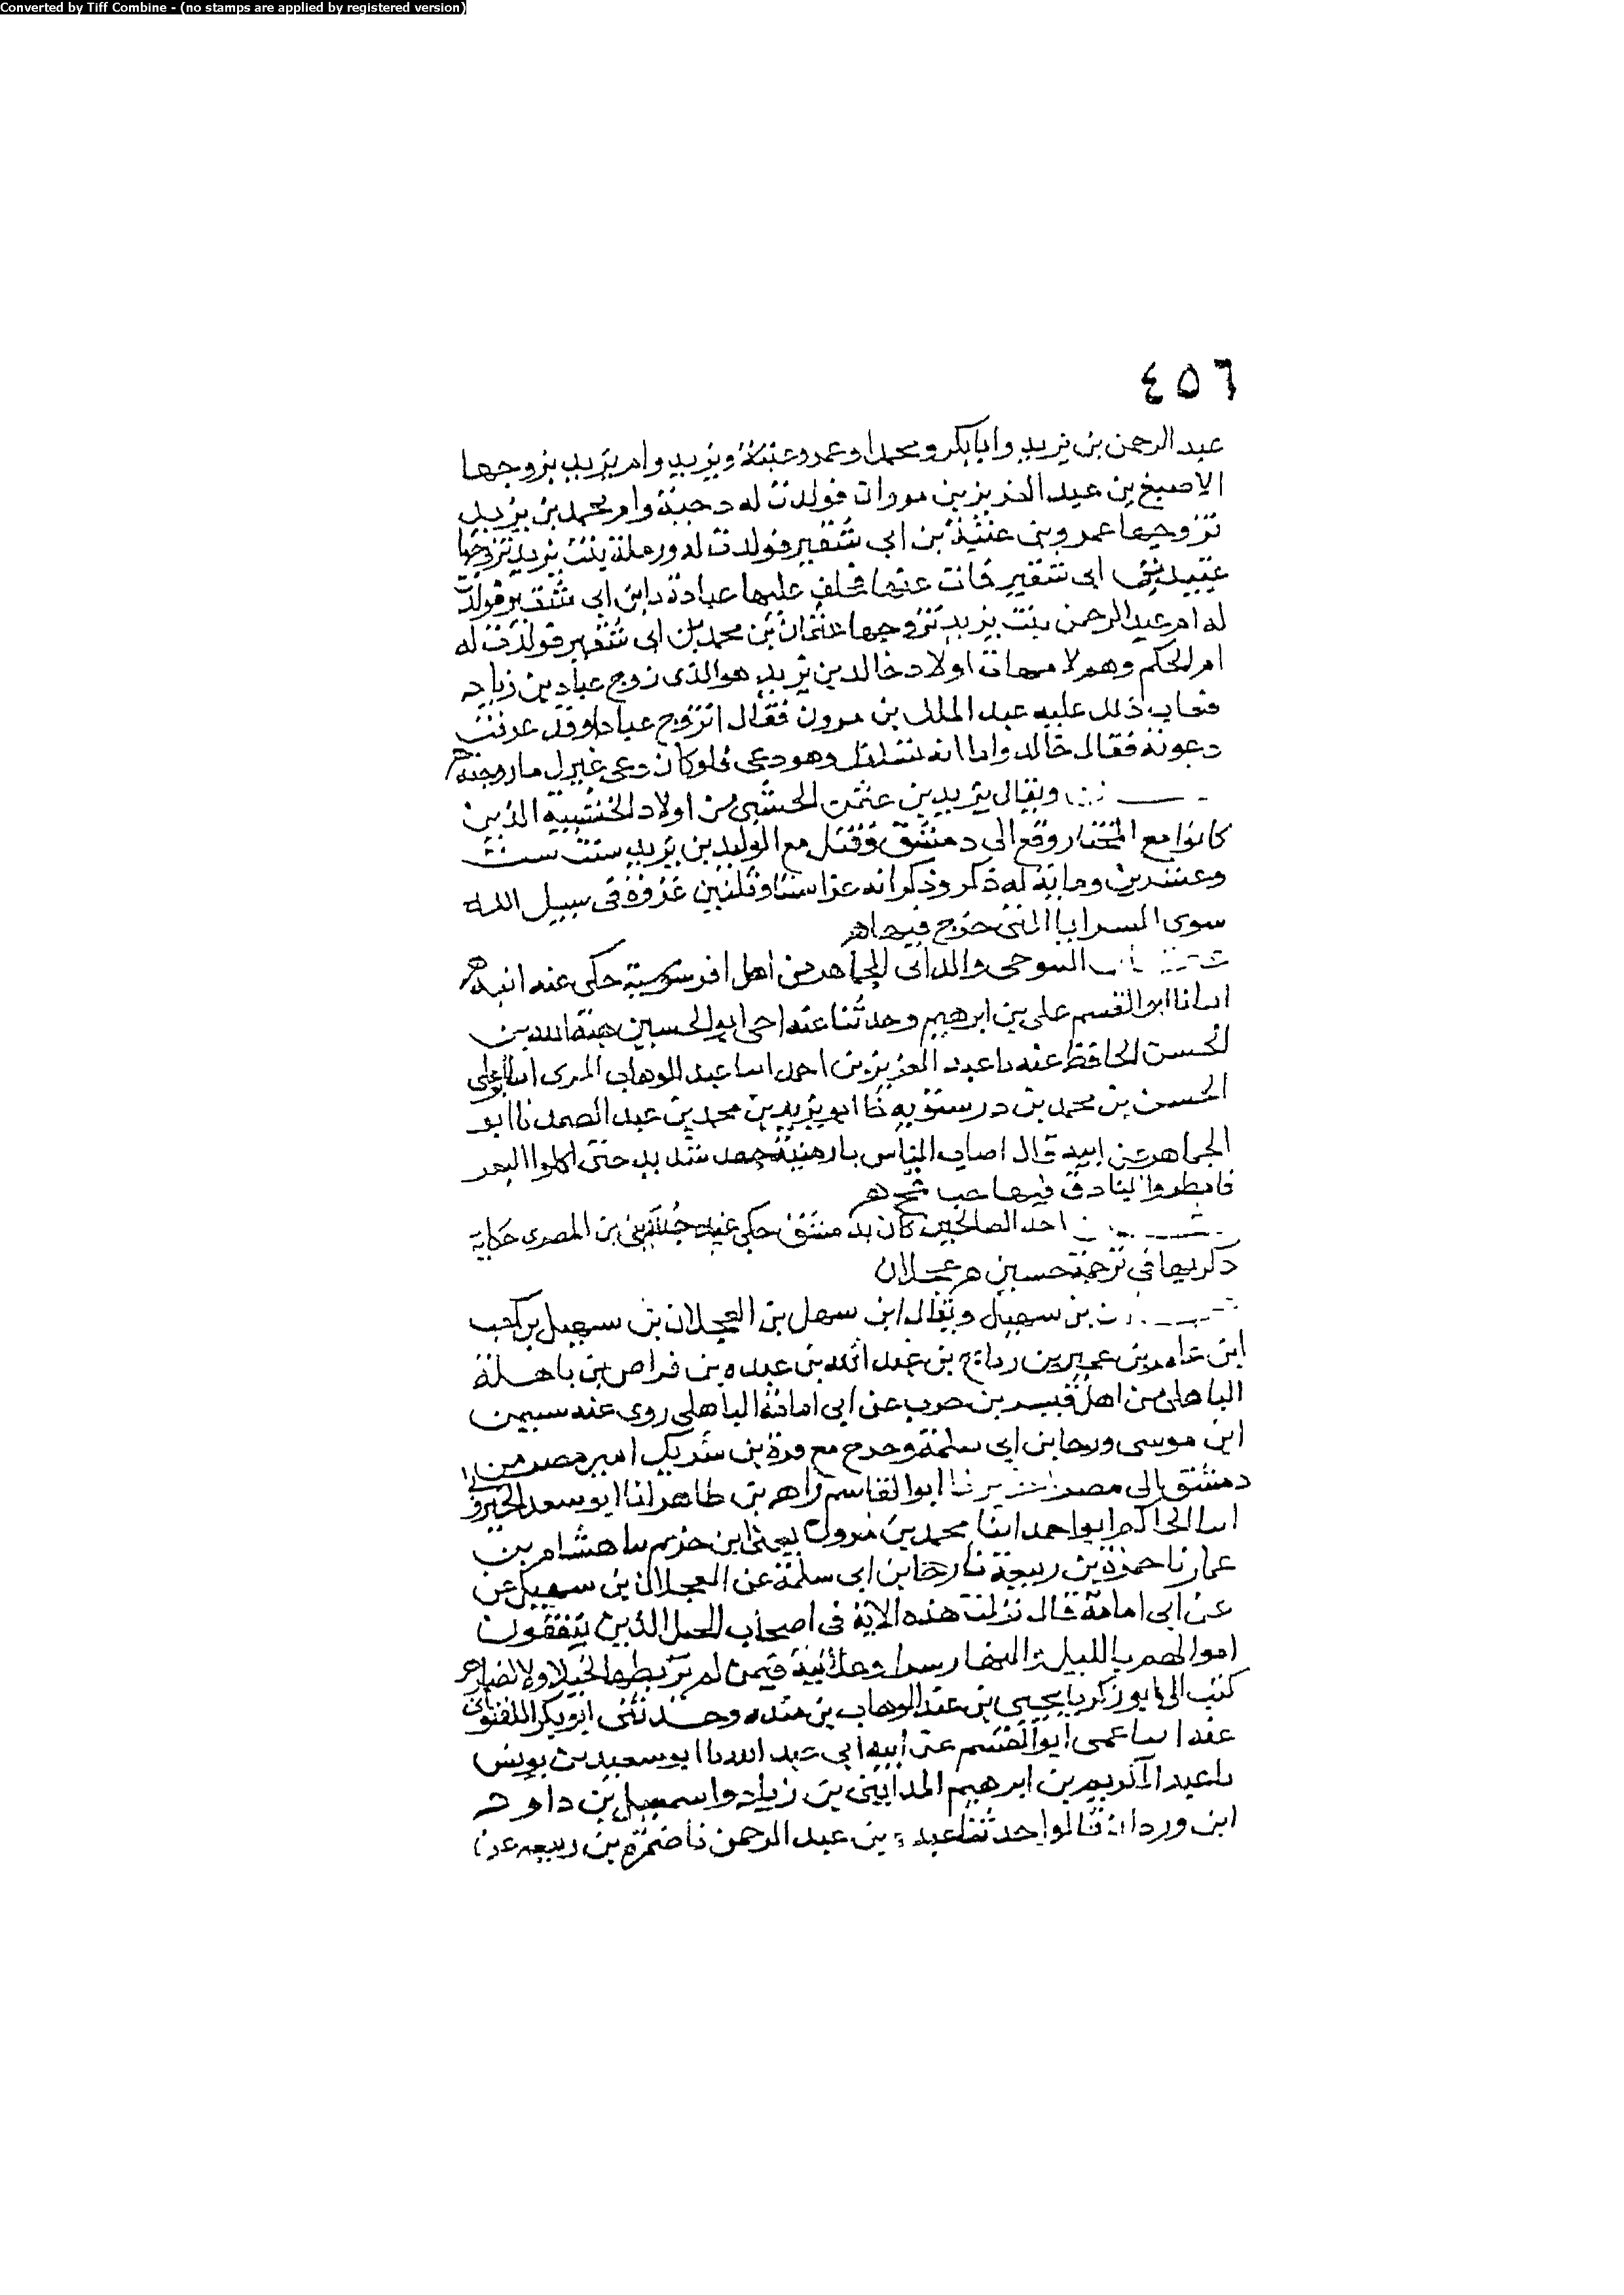 Converted by Tiff Combine - (no stamps are applied by registered version)
٤٥٦
عبد الرحمن بن يزيد وابابكر ومحمدا وعمر وعتبة ويزيد وام يزيد بزوجها
الاصبغ بن عبد العزيز بن مروان فولدت له دحية وام محمد بن يزيد
تزوجها عمرو بن عتبة بن ابي سفير فولدت له ورملة بنت يزيد تزوجها
ابي سفير عنها فخلف عليها عبادة ابن ابي فولدت
له ام عبد الرحمن بنت يزيد تزوجها عثمان بن محمد بن ابي فولدت له
ام الحكم وهم لامهات اولاد خالد بن يزيد هو الذى زوج عباد بن زياد
فعاب ذلك عليه عبد الملك بن مرون فقال اتزوج عبادا وقد عرفت
دعوته فقال خالد واما انه وهو دعي فلو كان دعي غيرك ما زوجته
ويقال يزيد بن عثمن الخشبي من اولاد الخشبية الذين
كانوا مع المختار وقع الى دمشق فقتل مع الوليد بن يزيد سنة ست
وعشرين وماية له ذكر وذكر انه غزا ستا وثلثين غزوة في سبيل الله
سوى السرايا التي خرج فيها هـ
التنوخي والد ابي الجماهر من اهل حكى عنه ابنه
ابو القسم علي بن ابرهيم وحدثنا عنه اخي ابو الحسين هبة الله بن
الحسن الحافظ عنه نا عبد العزيز بن احمد انبا عبد الوهاب المري
الحسن بن محمد بن درستويه نا ابو يزيد بن محمد بن عبد الصمد نا ابو
الجماهر عن ابيه قال اصاب الناس بارمينية جهد شديد حتى اكلوا البعر
فامطروا بنادق فيها حب قمح هـ
احد الصالحين كان بدمشق حكى عنه بن المصري حكاية
ذكرتها في ترجمة حسين هـ عجلان
بن سهيل ويقال ابن سهل بن العجلان بن سهيل بن كعب
ابن عامر بن عمير بن رباح بن عبد الله بن عبده بن فراص بن باهلة
الباهلي من اهل قنسرين حرب عن ابي امامة الباهلي روى عنه سليمن
ابن موسى ورجا بن ابي سلمة وخرج مع قرة بن شريك امير مصر من
دمشق الى مصر ابو القاسم زاهر بن طاهر انا ابو سعد
انبا الحاكم ابو احمد انبا محمد بن مروان يعني ابن خزيم نا هشام بن
عمار نا حمزة بن ربيعة نا رجا بن ابي سلمة عن العجلان بن سهيل عن
عن ابي امامة قال نزلت هذه الاية في اصحاب الخيل الذين ينفقون
اموالهم بالليل والنهار سرا وعلانية فيمن لم يربطها لخيلا ولا لضمار
كتب الي ابو زكريا يحيى بن عبد الوهاب بن منده وحدثني ابو بكر اللفتواني
عنه انبا عمي ابو القسم عن ابيه ابي عبد الله نا ابو سعيد بن يونس
نا عبد الكريم بن ابرهيم المدايني بن زياد واسمعيل بن داود
ابن وردان قالوا حدثنا بن عبد الرحمن نا ضمرة بن ربيعه عن